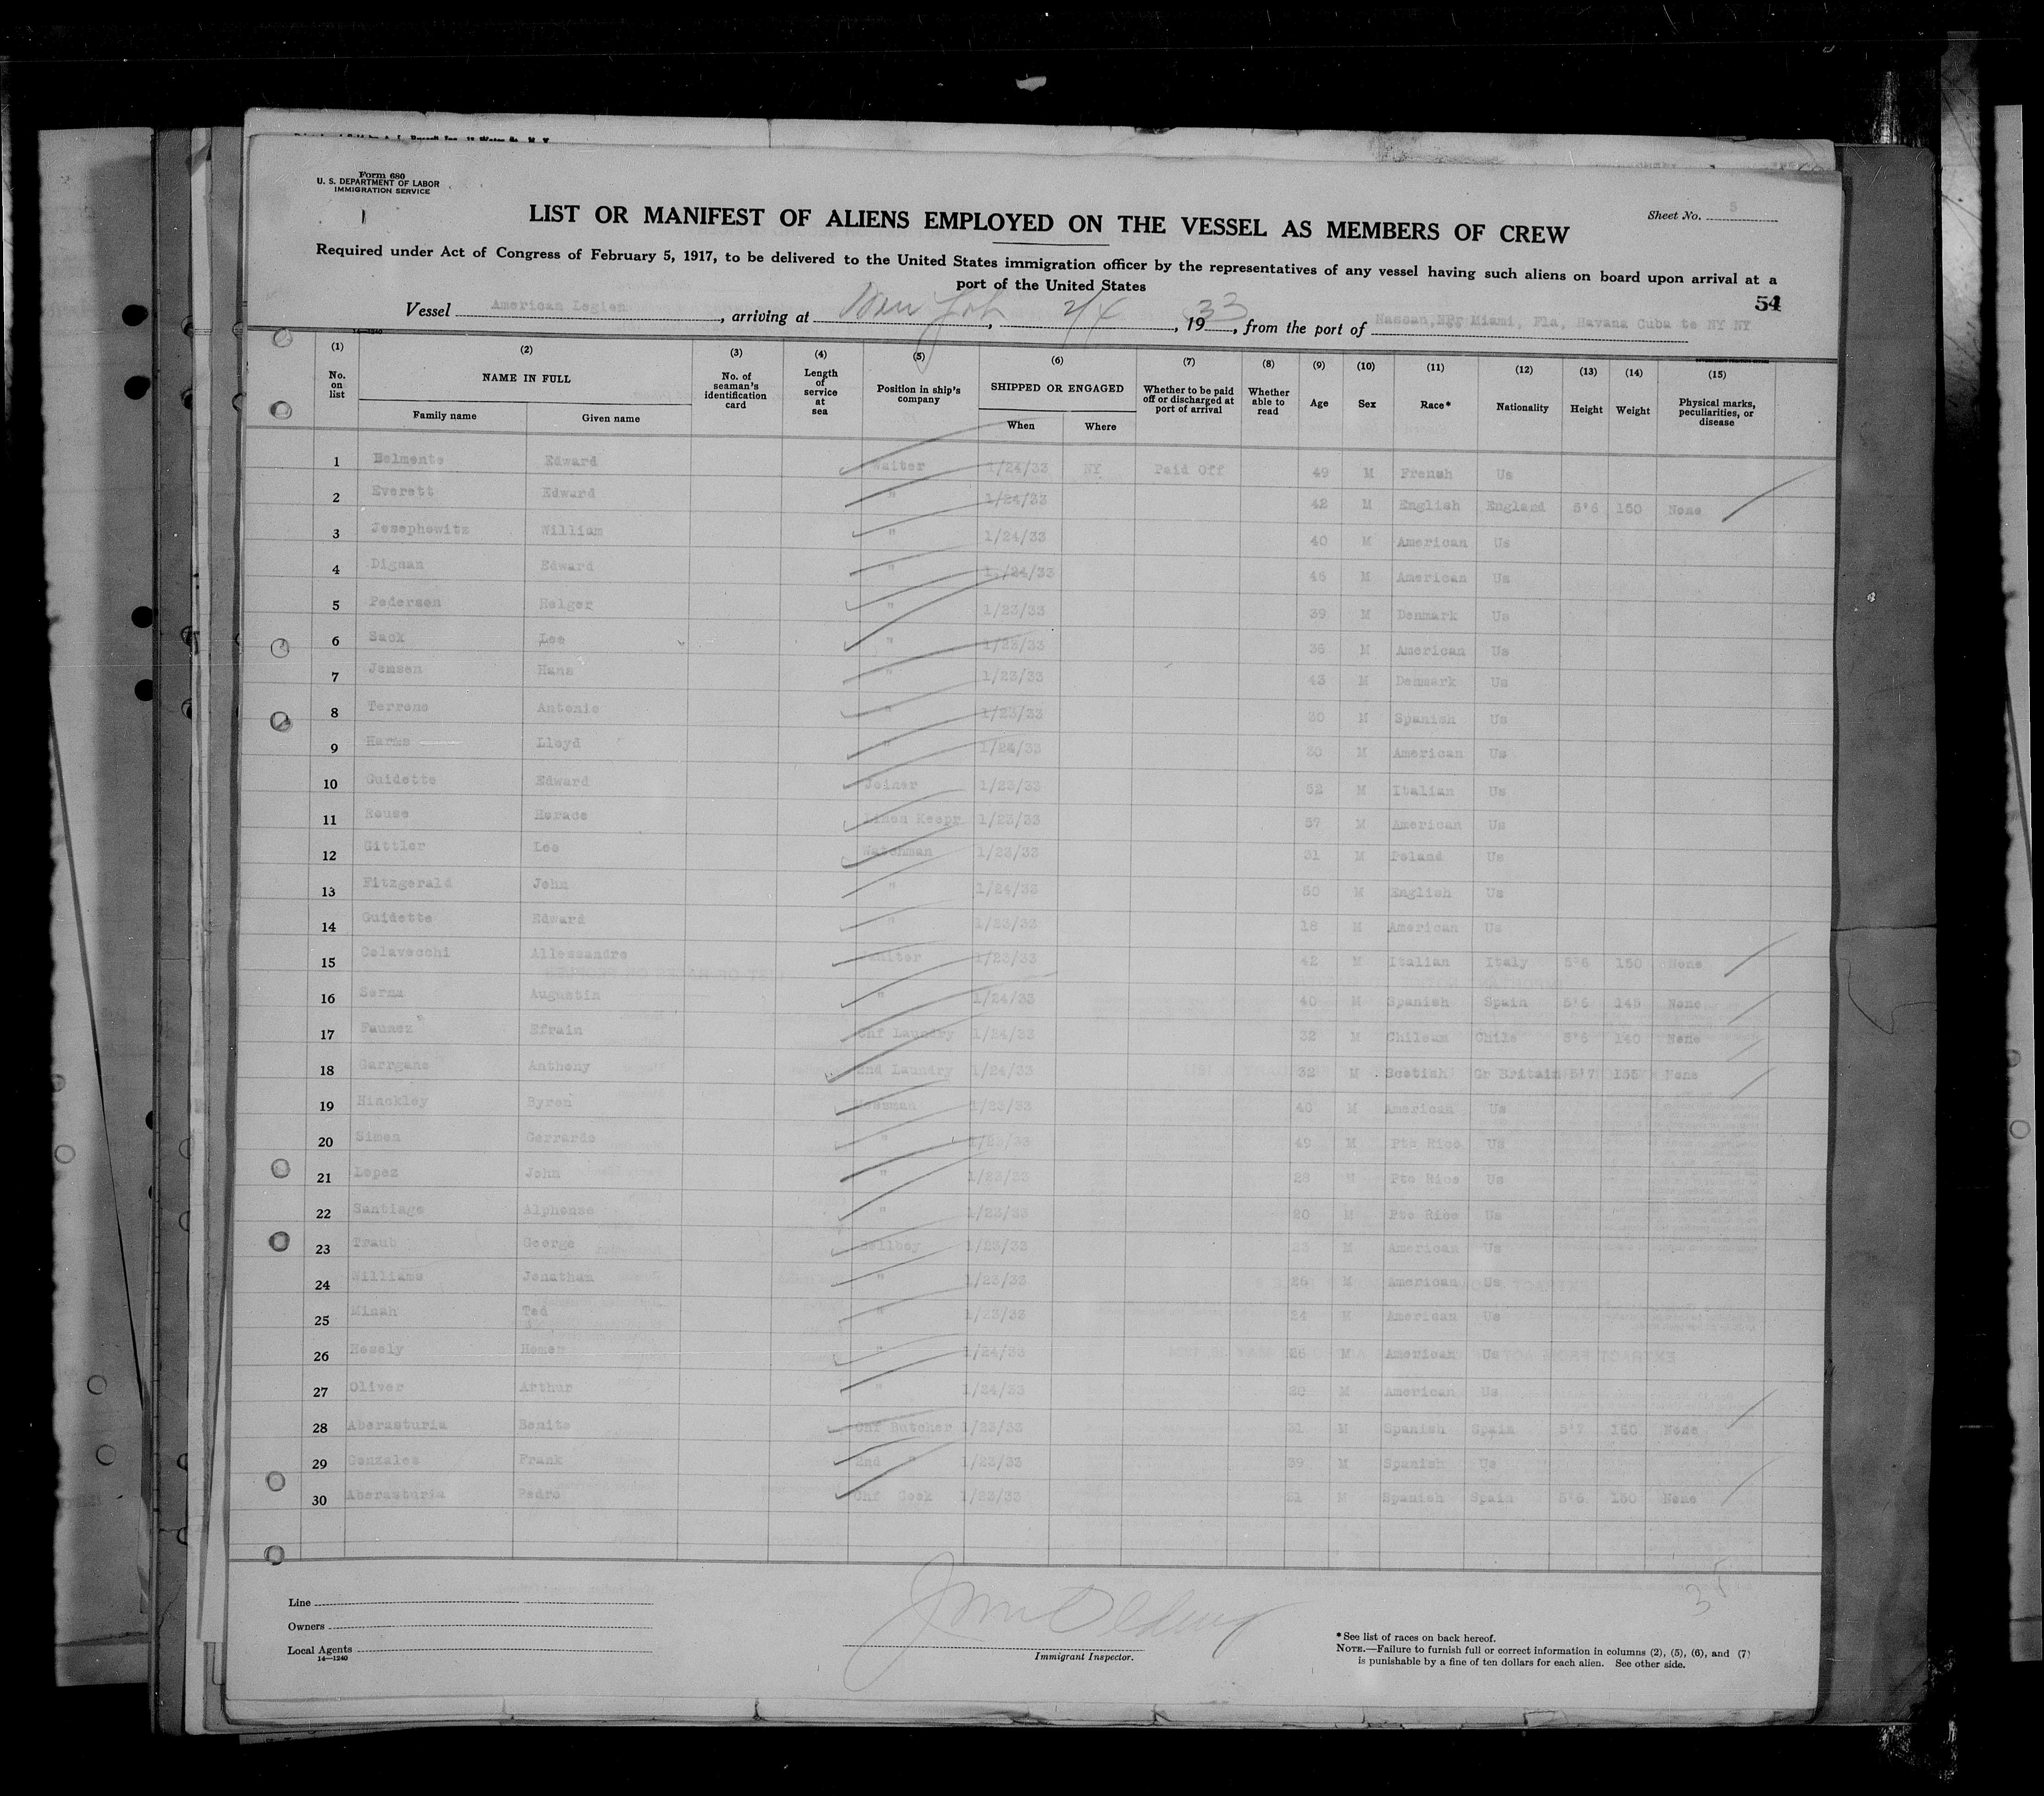 Form 680
U. S. DEPARTMENT OF LABOR
IMMIGRATION SERVICE
Sheet No. 5
LIST OR MANIFEST OF ALIENS EMPLOYED ON THE VESSEL AS MEMBERS OF CREW
Required under Act of Congress of February 5, 1917, to be delivered to the United States immigration officer by the representatives of any vessel having such aliens on board upon arrival at a
port of the United States
54
Vessel American Legion, arriving at New York, 2/4, 1933, from the port of Miami, Fla, Havana Cuba to NY NY
14—1240
(1) (2) (3) (4) (5) (6) (7) (8) (9) (10) (11) (12) (13) (14) (15)
No. on list NAME IN FULL No. of seaman's identification card Length of service at sea Position in ship's company SHIPPED OR ENGAGED Whether to be paid off or discharged at port of arrival Whether able to read Age Sex Race* Nationality Height Weight Physical marks, peculiarities, or disease
Family name Given name When Where
1 Belmonte Edward Waiter 1/24/33 NY Paid Off 49 M French Us
2 Everett Edward " 1/24/33 42 M English England 5'6 150 None
3 Josephowitz William " 1/24/33 40 M American Us
4 Dignan Edward " 1/24/33 46 M American Us
5 Pedersen Holger " 1/23/33 39 M Denmark Us
6 Sack Leo " 1/23/33 36 M American Us
7 Jensen Hans " 1/23/33 43 M Denmark Us
8 Terrone Antonio " 1/23/33 30 M Spanish Us
9 Harms Lloyd " 1/24/33 30 M American Us
10 Guidotte Edward Joiner 1/23/33 52 M Italian Us
11 Rouse Horace Linen Keepr 1/23/33 57 M American Us
12 Gittler Leo Watchman 1/23/33 31 M Poland Us
13 Fitzgerald John " 1/24/33 50 M English Us
14 Guidotte Edward " 1/23/33 18 M American Us
15 Colavecchi Allessandro Waiter 1/23/33 42 M Italian Italy 5'6 150 None
16 Serna Augustin " 1/24/33 40 M Spanish Spain 5'6 145 None
17 Faunez Efrain Chf Laundry 1/24/33 32 M Chilean Chile 5'6 140 None
18 Garrgano Anthony 2nd Laundry 1/24/33 32 M Scotish Gr Britain 5'7 155 None
19 Hinckley Byron Messman 1/23/33 40 M American Us
20 Simon Gerrardo " 1/23/33 49 M Pto Rico Us
21 Lopez John " 1/23/33 28 M Pto Rico Us
22 Santiago Alphonso " 1/23/33 20 M Pto Rico Us
23 Traub George Bellboy 1/23/33 23 M American Us
24 Williams Jonathan " 1/23/33 26 M American Us
25 Minah Ted " 1/23/33 24 M American Us
26 Hosely Homer " 1/24/33 26 M American Us
27 Oliver Arthur " 1/24/33 20 M American Us
28 Aberasturia Benito Chf Butcher 1/23/33 31 M Spanish Spain 5'7 160 None
29 Gonzales Frank 2nd " 1/23/33 39 M Spanish Us
30 Aberasturia Pedro Chf Cook 1/23/33 M Spanish Spain 5'6 150 None
35
Line
Owners
Local Agents
14—1240
Immigrant Inspector.
*See list of races on back hereof.
NOTE.—Failure to furnish full or correct information in columns (2), (5), (6), and (7)
is punishable by a fine of ten dollars for each alien. See other side.